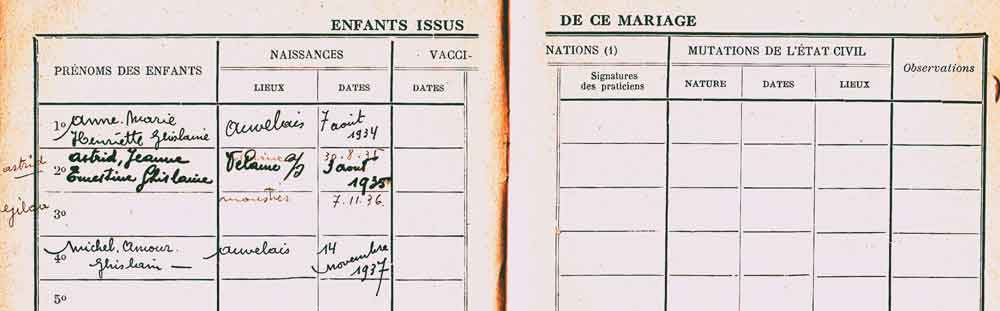 ENFANTS ISSUS DE CE MARIAGE
PRÉNOMS DES ENFANTS NAISSANCES VACCI- NATIONS (1) MUTATIONS DE L'ÉTAT CIVIL Observations
LIEUX DATES DATES Signatures des praticiens NATURE DATES LIEUX
1º Anne-Marie auvelais 7 août
Henriette Ghislaine 1934
astrid 30.8.35
2º astrid, Jeanne Velaine s/S août
Ernestine Ghislaine 1935
3º moustier 7.11.36
4º Michel, Amour auvelais 14
Ghislain — novembre
1937
5º